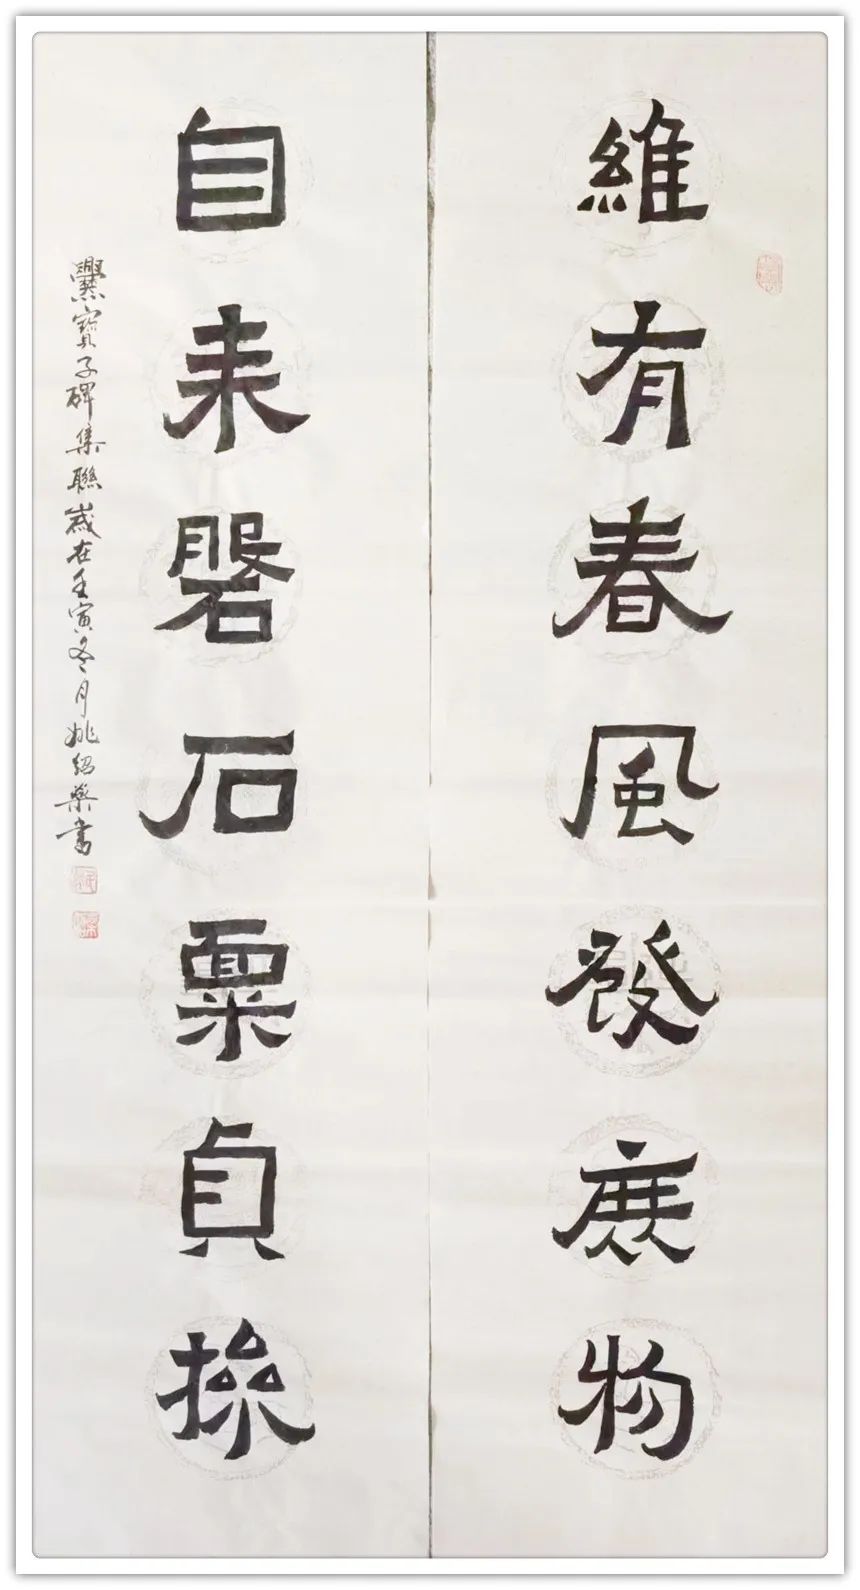 維有春風發庶物
自来磐石稟貞操
爨寶子碑集聯歲在壬寅冬月姚紹書